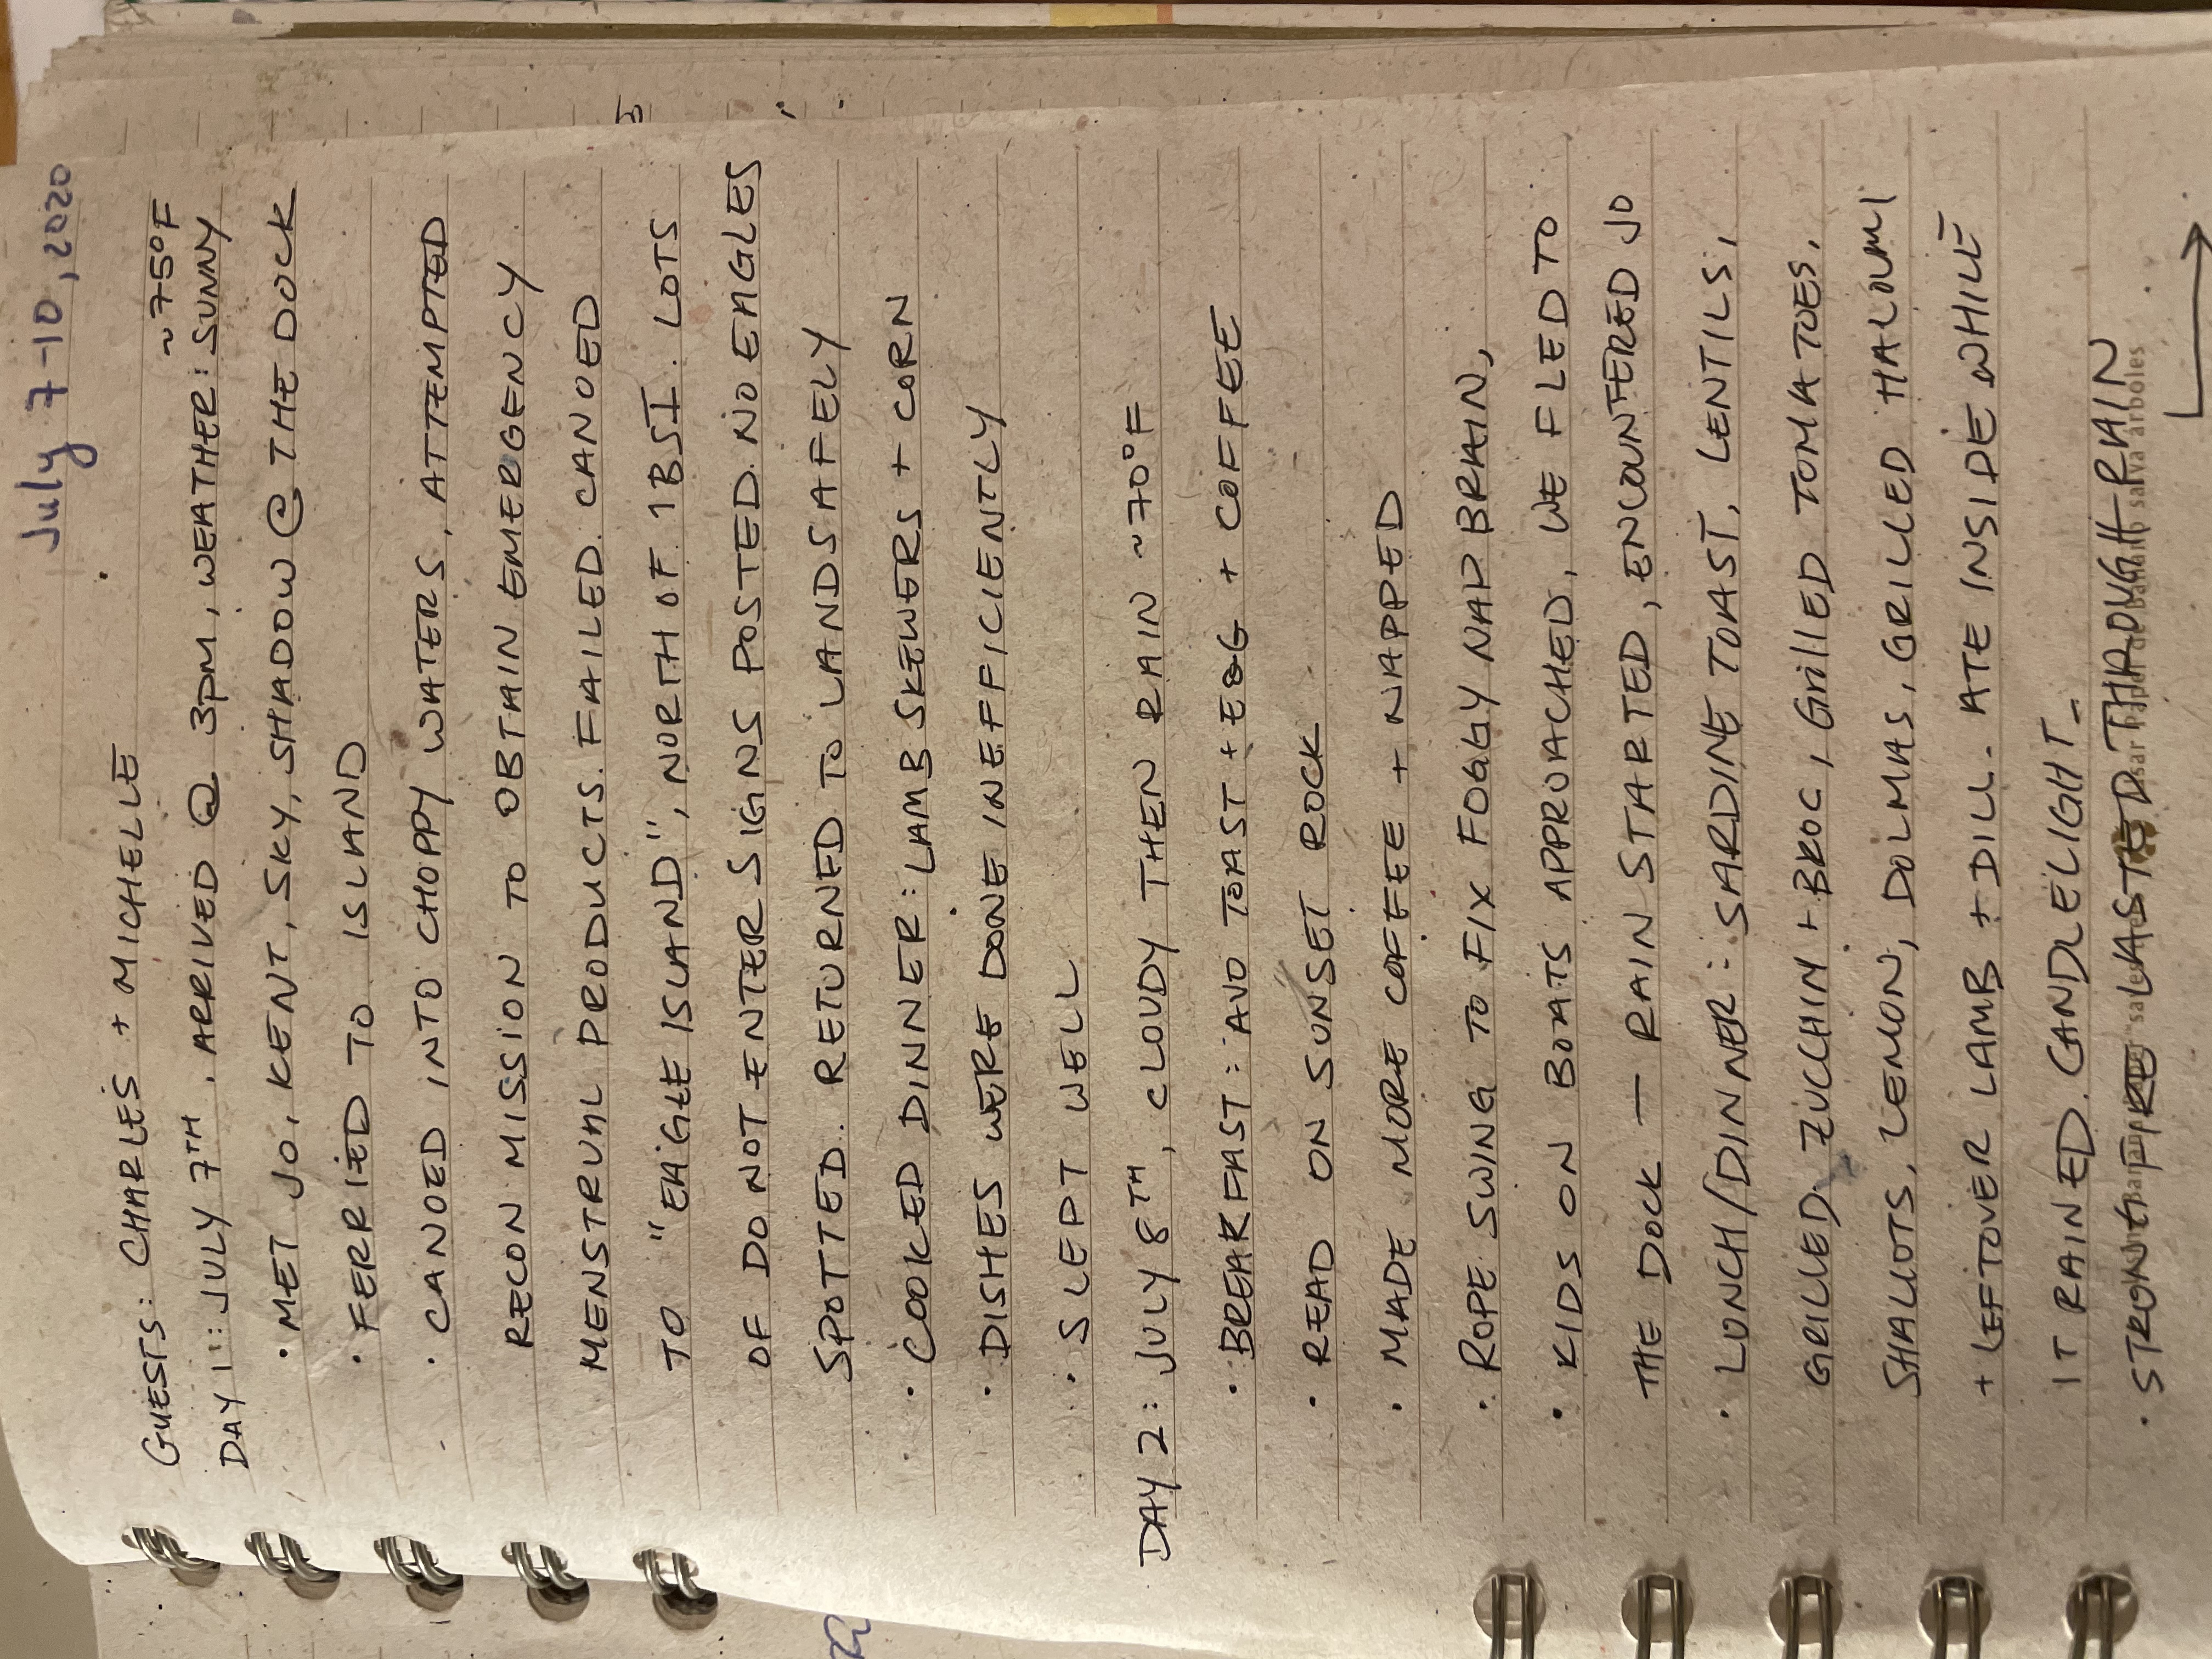 July 7-10, 2020
GUESTS: CHARLES + MICHELLE
~75°F
DAY 1: JULY 7TH. ARRIVED @ 3PM, WEATHER: SUNNY
• MET JO, KENT, SKY, SHADOW @ THE DOCK
• FERRIED TO ISLAND
• CANOED INTO CHOPPY WATERS, ATTEMPTED
RECON MISSION TO OBTAIN EMERGENCY
MENSTRUAL PRODUCTS. FAILED. CANOED
TO "EAGLE ISLAND", NORTH OF 1BSI. LOTS
OF DO NOT ENTER SIGNS POSTED. NO EAGLES
SPOTTED. RETURNED TO LAND SAFELY
• COOKED DINNER: LAMB SKEWERS + CORN
• DISHES WERE DONE INEFFICIENTLY
• SLEPT WELL
DAY 2: JULY 8TH, CLOUDY THEN RAIN ~70°F
• BREAKFAST: AVO TOAST + EGG + COFFEE
• READ ON SUNSET ROCK
• MADE MORE COFFEE + NAPPED
• ROPE SWING TO FIX FOGGY NAP BRAIN,
• KIDS ON BOATS APPROACHED, WE FLED TO
THE DOCK — RAIN STARTED, ENCOUNTERED JO
• LUNCH/DINNER: SARDINE TOAST, LENTILS,
GRILLED ZUCCHIN + BROC, GRILLED TOMATOES,
SHALLOTS, LEMON, DOLMAS, GRILLED HALOUMI
+ LEFTOVER LAMB + DILL. ATE INSIDE WHILE
IT RAINED. CANDLELIGHT.
• STRONG FIRE LASTED THROUGH RAIN